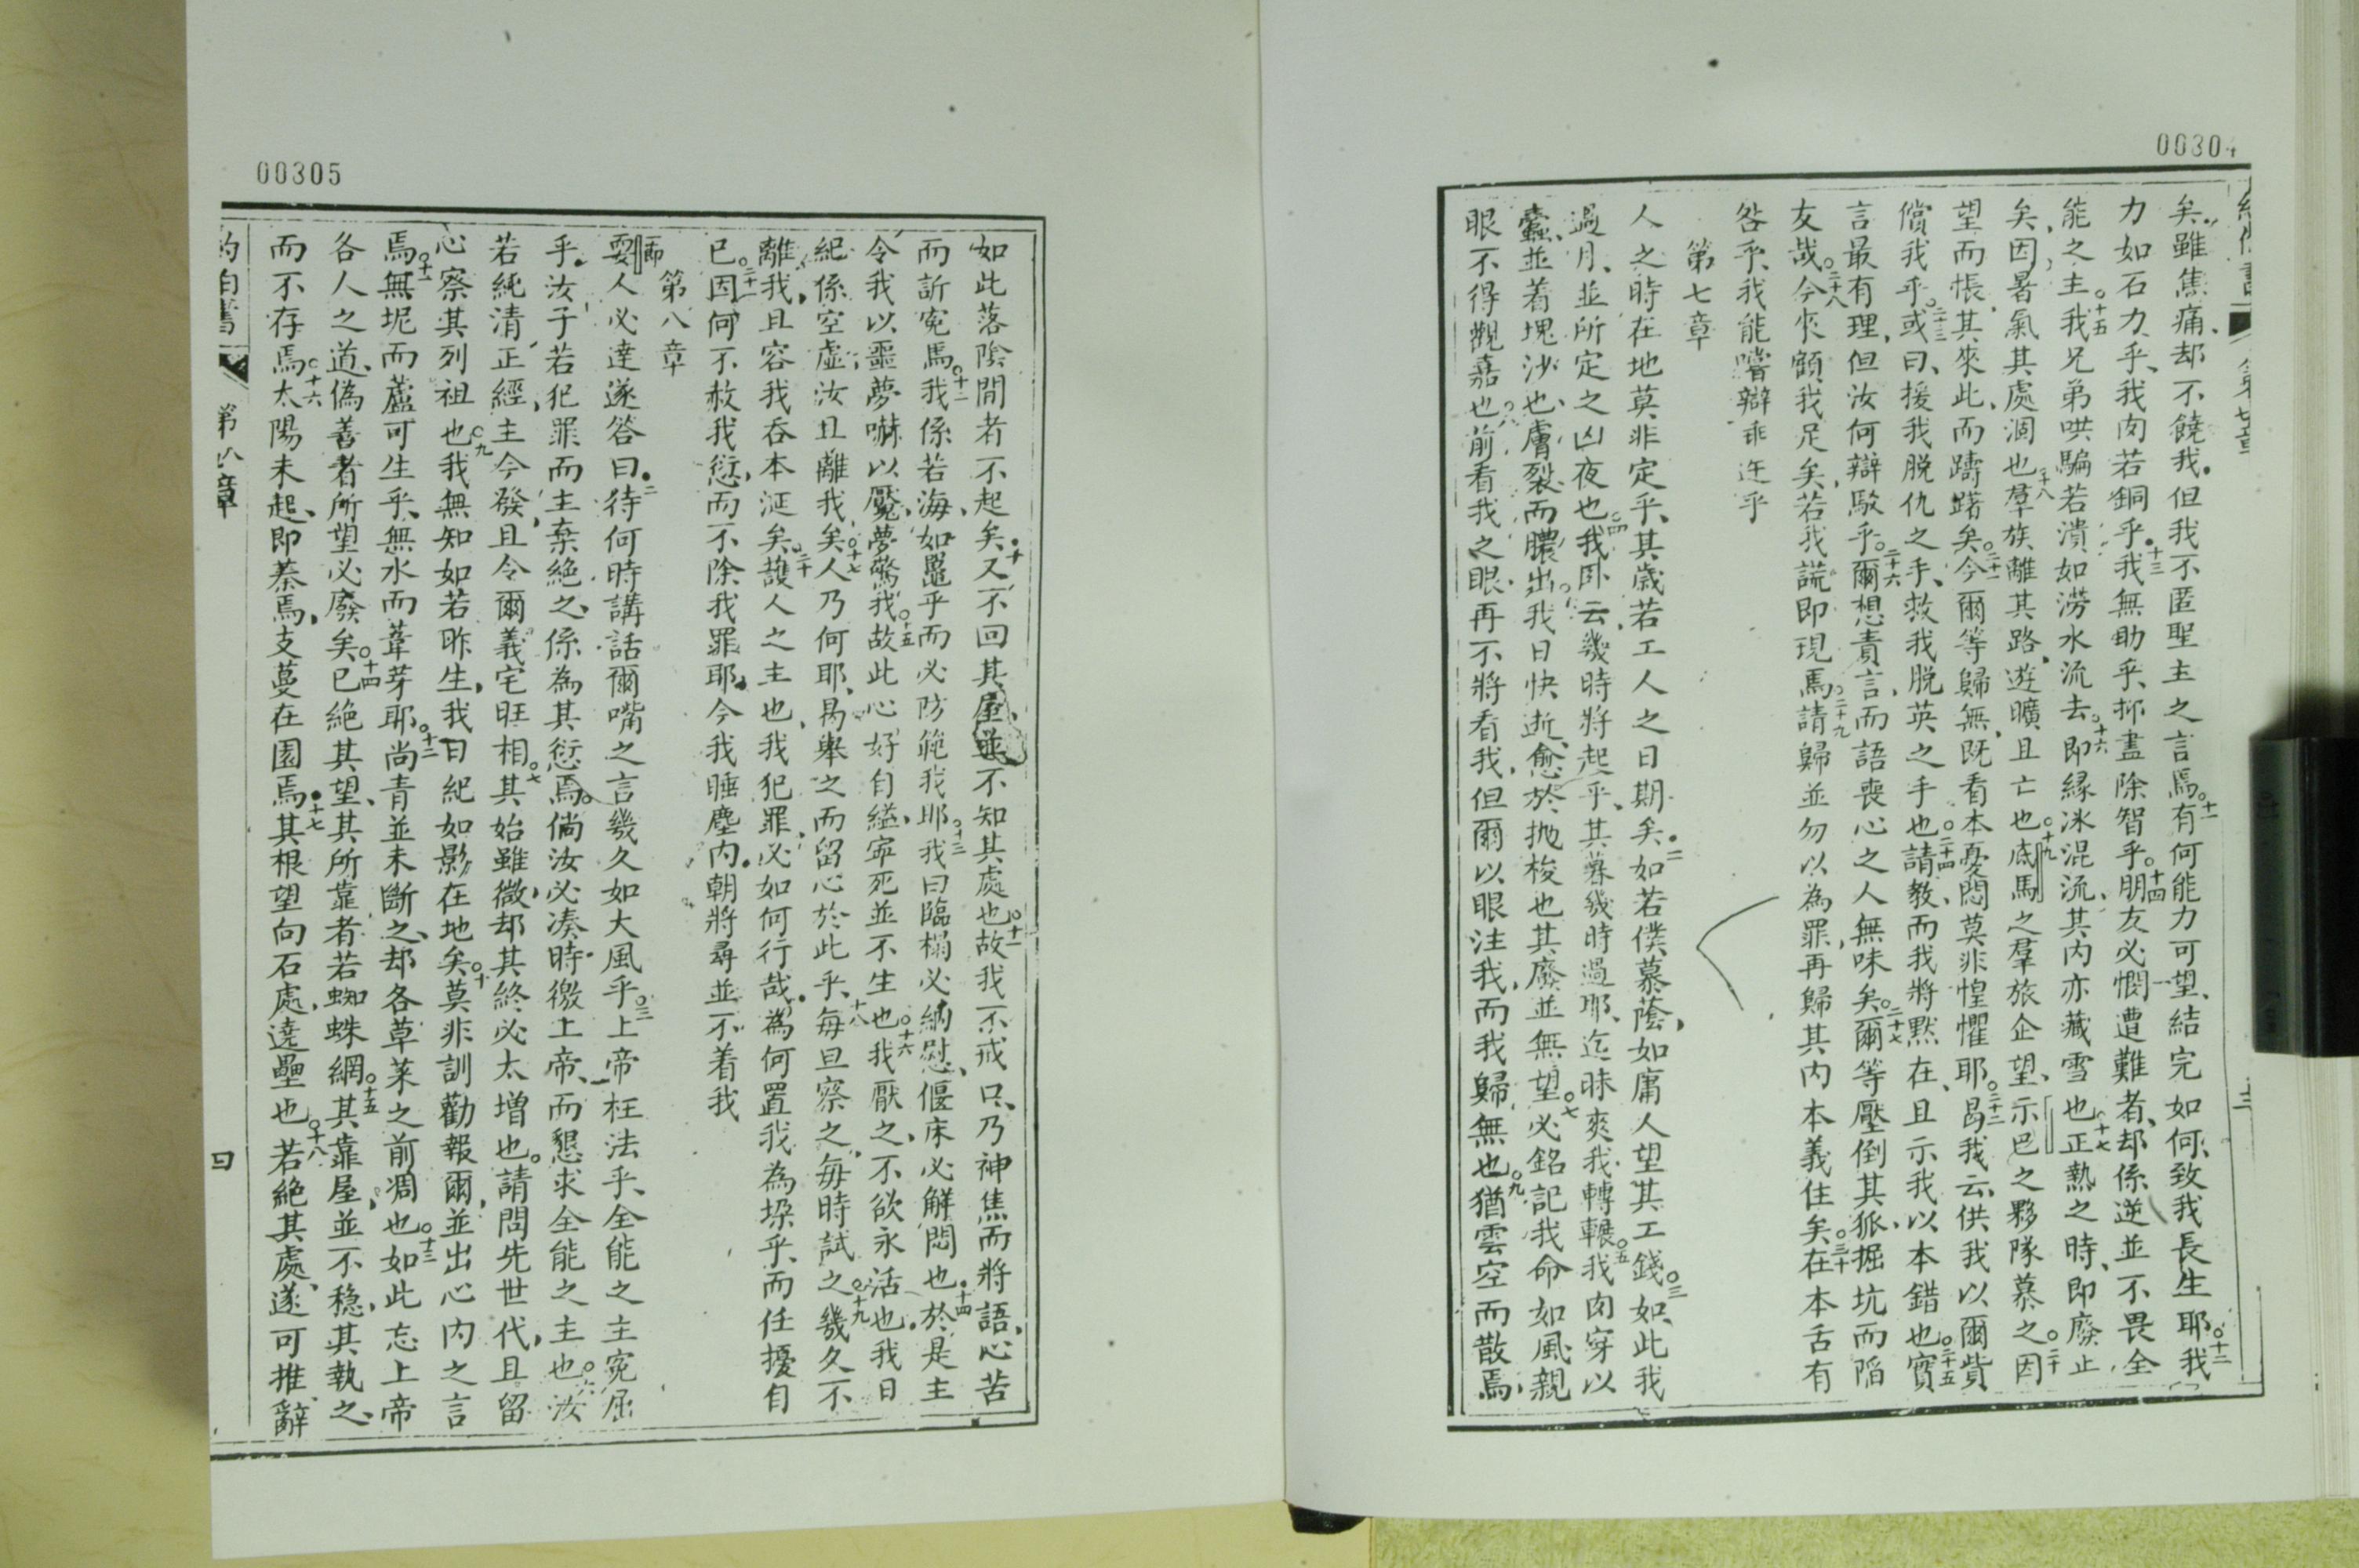 00304
矣、雖焦痛、却不饒我、但我不匿聖主之言焉、十一有何能力可望、結完如何、致我長生耶、十二我
力如石力乎、我肉若銅乎、十三我無助乎、抑盡除智乎、十四朋友必憫遭難者、却係逆並不畏全
能之主、十五我兄弟哄騙若潰如澇水流去、十六即緣氷混流、其內亦藏雪也、十七正熱之時、即廢止
矣、因暑氣其處涸也、十八羣族離其路、遊曠且亡也、十九底馬之羣旅企望、示巴之夥隊慕之、二十因
望而悵、其來此、而躊躇矣、二十一今爾等歸無、既看本憂悶莫非惶懼耶、二十二曷我云、供我以爾貲
償我乎、二十三或曰、援我脫仇之手、救我脫英之手也、二十四請教、而我將默在、且示我以本錯也、二十五實
言最有理、但汝何辯駁乎、二十六爾想責言、而語喪心之人無味矣、二十七爾等壓倒其孤、掘坑而陷
友哉、二十八今來顧我足矣、若我謊即現焉、二十九請歸並勿以為罪、再歸其內本義住矣、三十在本舌有
咎乎、我能嚐辯乖迕乎
第七章
人之時在地莫非定乎、其歲若工人之日期矣、二如若僕慕蔭、如庸人望其工錢、三如此我
過月、並所定之凶夜也、四我卧云、幾時將起乎、其暮幾時過耶、迄昧爽我轉輾、五我肉穿以
蠹、並着塊沙也、膚裂而膿出、六我日快逝、愈於拋梭也、其廢並無望、七必銘記我命如風、親
眼不得觀嘉也、八前看我之眼、再不將看我、但爾以眼注我、而我歸無也、九猶雲空而散焉、
00305
如此落陰間者不起矣、十又不回其屋、並不知其處也、十一故我不戒口、乃神焦而將語、心苦
而訴寃焉、十二我係若海、如鼉乎、而必防範我耶、十三我曰臨榻必納慰、偃床必解悶也、十四於是主
令我以噩夢嚇、以魘夢驚我、十五故此心好自縊、寧死並不生也、十六我厭之、不欲永活也、我日
紀係空虛、汝且離我矣、十七人乃何耶、曷舉之而留心於此乎、十八每旦察之、每時試之、十九幾久不
離我、且容我吞本涎矣、二十護人之主也、我犯罪、必如何行哉、為何置我為垜乎、而任擾自
已、二十一因何不赦我愆、而不除我罪耶、今我睡塵內、朝將尋並不着我
第八章
耍人必達遂答曰、二待何時講話爾嘴之言幾久如大風乎、三上帝枉法乎、全能之主寃屈
乎、汝子若犯罪而主棄絕之、係為其愆焉、倘汝必凑時徼上帝、而懇求全能之主也、六汝
若純清正經、主今發、且令爾義宅旺相、七其始雖微、却其終必太增也、請問先世代、且留
心察其列祖也、九我無知如若昨生、我日紀如影在地矣、十莫非訓勸報爾、並出心內之言
焉、十一無坭而蘆可生乎、無水而葦芽耶、十二尚青並未斷之、却各草菜之前凋也、十三如此忘上帝
各人之道、偽善者所望必廢矣、十四已絕其望、其所靠者若蜘蛛網、十五其靠屋、並不穩、其執之、
而不存焉、十六太陽未起、即蓁焉、支蔓在園焉、十七其根望向石處、達壘也、十八若絕其處、遂可推辭
約伯書 第八章